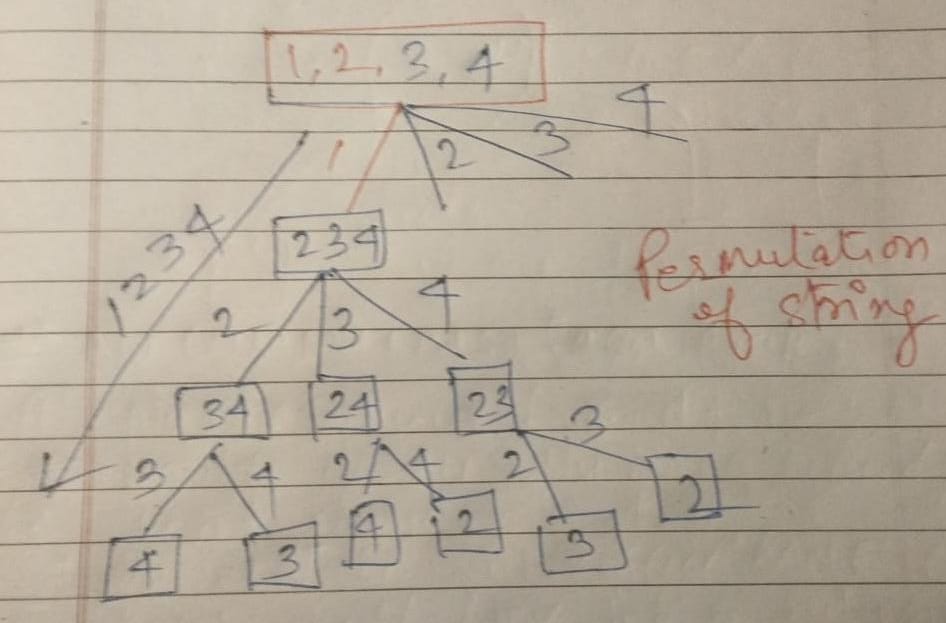 1, 2, 3, 4
1 2 3 4
1 2 3 4
234
Permutation
of string
2 3 4
34 24 23
3 4 2 4 2 3
4 3 4 2 3 2